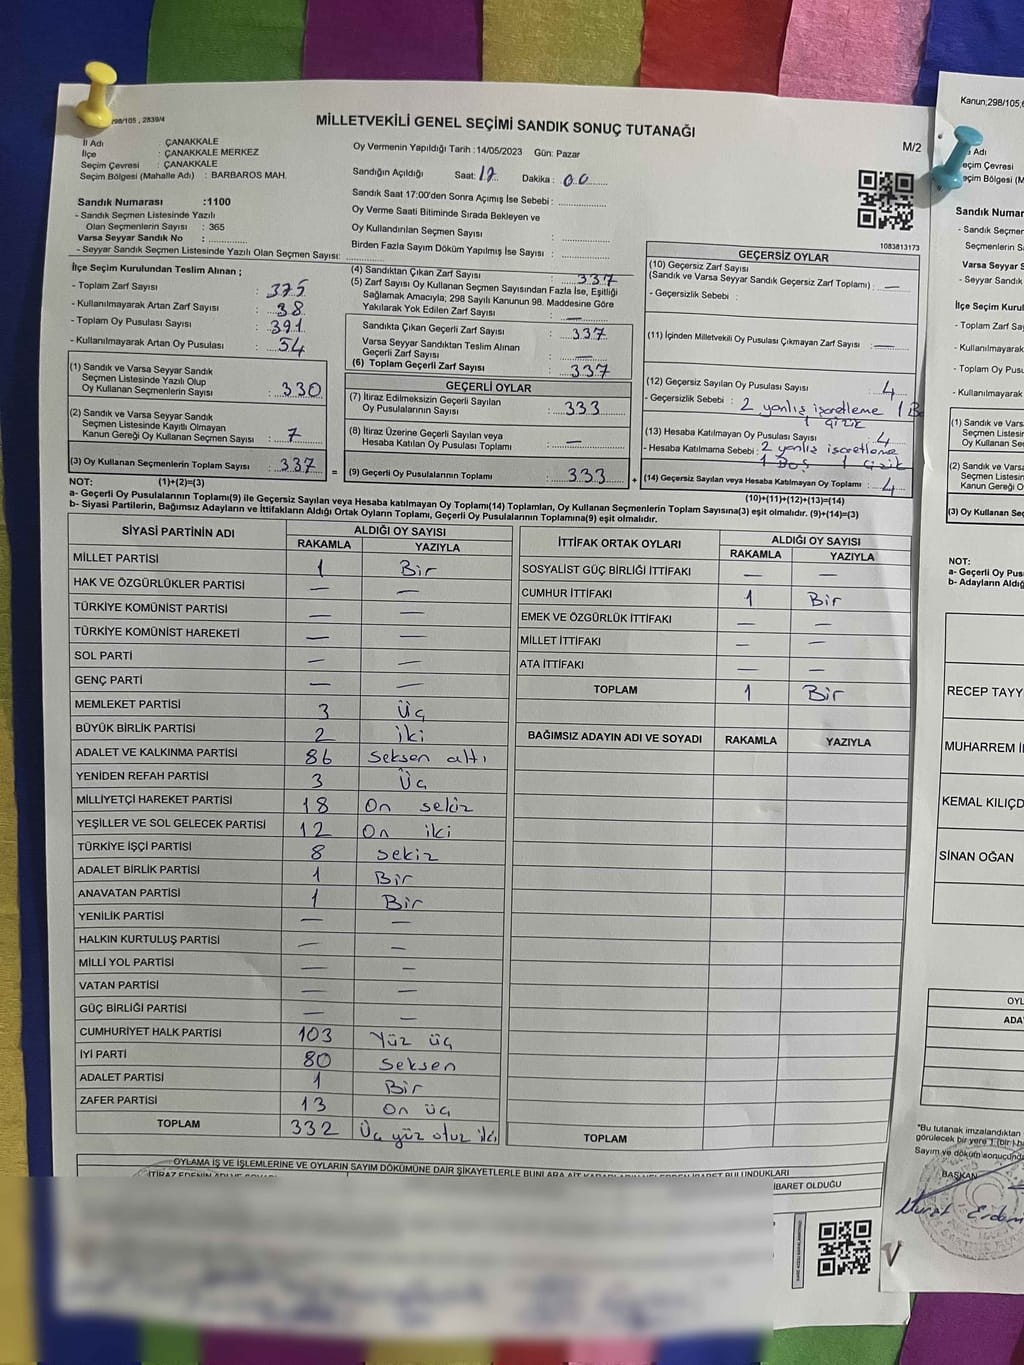 298/105 , 2839/4
MİLLETVEKİLİ GENEL SEÇİMİ SANDIK SONUÇ TUTANAĞI
M/2
İl Adı : ÇANAKKALE
İlçe : ÇANAKKALE MERKEZ
Seçim Çevresi : ÇANAKKALE
Seçim Bölgesi (Mahalle Adı) : BARBAROS MAH.
Oy Vermenin Yapıldığı Tarih : 14/05/2023 Gün: Pazar
Sandığın Açıldığı Saat: 17 Dakika : 00
Sandık Saat 17:00'den Sonra Açımış İse Sebebi :
Oy Verme Saati Bitiminde Sırada Bekleyen ve
Oy Kullandırılan Seçmen Sayısı :
Birden Fazla Sayım Döküm Yapılmış İse Sayısı :
1083813173
Sandık Numarası :1100
- Sandık Seçmen Listesinde Yazılı
Olan Seçmenlerin Sayısı : 365
Varsa Seyyar Sandık No :
- Seyyar Sandık Seçmen Listesinde Yazılı Olan Seçmen Sayısı:
İlçe Seçim Kurulundan Teslim Alınan ;
- Toplam Zarf Sayısı : 375
- Kullanılmayarak Artan Zarf Sayısı : 38
- Toplam Oy Pusulası Sayısı : 391
- Kullanılmayarak Artan Oy Pusulası : 54
(1) Sandık ve Varsa Seyyar Sandık
Seçmen Listesinde Yazılı Olup
Oy Kullanan Seçmenlerin Sayısı : 330
(2) Sandık ve Varsa Seyyar Sandık
Seçmen Listesinde Kayıtlı Olmayan
Kanun Gereği Oy Kullanan Seçmen Sayısı : 7
(3) Oy Kullanan Seçmenlerin Toplam Sayısı : 337 =
(4) Sandıktan Çıkan Zarf Sayısı : 337
(5) Zarf Sayısı Oy Kullanan Seçmen Sayısından Fazla İse, Eşitliği
Sağlamak Amacıyla; 298 Sayılı Kanunun 98. Maddesine Göre
Yakılarak Yok Edilen Zarf Sayısı : —
Sandıkta Çıkan Geçerli Zarf Sayısı : 337
Varsa Seyyar Sandıktan Teslim Alınan
Geçerli Zarf Sayısı : —
(6) Toplam Geçerli Zarf Sayısı : 337
GEÇERLİ OYLAR
(7) İtiraz Edilmeksizin Geçerli Sayılan
Oy Pusulalarının Sayısı : 333
(8) İtiraz Üzerine Geçerli Sayılan veya
Hesaba Katılan Oy Pusulası Toplamı : —
(9) Geçerli Oy Pusulalarının Toplamı : 333 +
GEÇERSİZ OYLAR
(10) Geçersiz Zarf Sayısı
(Sandık ve Varsa Seyyar Sandık Geçersiz Zarf Toplamı) : —
- Geçersizlik Sebebi :
(11) İçinden Milletvekili Oy Pusulası Çıkmayan Zarf Sayısı : —
(12) Geçersiz Sayılan Oy Pusulası Sayısı : 4
- Geçersizlik Sebebi : 2 yanlış işaretleme
1 çizik
(13) Hesaba Katılmayan Oy Pusulası Sayısı : 4
- Hesaba Katılmama Sebebi : 2 yanlış işaretleme
1 Boş 1 çizik
(14) Geçersiz Sayılan veya Hesaba Katılmayan Oy Toplamı : 4
(10)+(11)+(12)+(13)=(14)
NOT: (1)+(2)=(3)
a- Geçerli Oy Pusulalarının Toplamı(9) ile Geçersiz Sayılan veya Hesaba katılmayan Oy Toplamı(14) Toplamları, Oy Kullanan Seçmenlerin Toplam Sayısına(3) eşit olmalıdır. (9)+(14)=(3)
b- Siyasi Partilerin, Bağımsız Adayların ve İttifakların Aldığı Ortak Oyların Toplamı, Geçerli Oy Pusulalarının Toplamına(9) eşit olmalıdır.
SİYASİ PARTİNİN ADI ALDIĞI OY SAYISI
RAKAMLA YAZIYLA
MİLLET PARTİSİ 1 Bir
HAK VE ÖZGÜRLÜKLER PARTİSİ — —
TÜRKİYE KOMÜNİST PARTİSİ — —
TÜRKİYE KOMÜNİST HAREKETİ — —
SOL PARTİ — —
GENÇ PARTİ — —
MEMLEKET PARTİSİ 3 Üç
BÜYÜK BİRLİK PARTİSİ 2 iki
ADALET VE KALKINMA PARTİSİ 86 Seksen altı
YENİDEN REFAH PARTİSİ 3 Üç
MİLLİYETÇİ HAREKET PARTİSİ 18 On sekiz
YEŞİLLER VE SOL GELECEK PARTİSİ 12 On iki
TÜRKİYE İŞÇİ PARTİSİ 8 sekiz
ADALET BİRLİK PARTİSİ 1 Bir
ANAVATAN PARTİSİ 1 Bir
YENİLİK PARTİSİ — —
HALKIN KURTULUŞ PARTİSİ — —
MİLLİ YOL PARTİSİ — —
VATAN PARTİSİ — —
GÜÇ BİRLİĞİ PARTİSİ — —
CUMHURİYET HALK PARTİSİ 103 Yüz üç
İYİ PARTİ 80 Seksen
ADALET PARTİSİ 1 Bir
ZAFER PARTİSİ 13 On üç
TOPLAM 332 Üç yüz otuz iki
İTTİFAK ORTAK OYLARI ALDIĞI OY SAYISI
RAKAMLA YAZIYLA
SOSYALİST GÜÇ BİRLİĞİ İTTİFAKI — —
CUMHUR İTTİFAKI 1 Bir
EMEK VE ÖZGÜRLÜK İTTİFAKI — —
MİLLET İTTİFAKI — —
ATA İTTİFAKI — —
TOPLAM 1 Bir
BAĞIMSIZ ADAYIN ADI VE SOYADI RAKAMLA YAZIYLA
TOPLAM
OYLAMA İŞ VE İŞLEMLERİNE VE OYLARIN SAYIM DÖKÜMÜNE DAİR ŞİKAYETLERLE BUNLARA AİT
İBARET OLDUĞU
Kanun;298/105,
Adı
eçim Çevresi
Sandık Numar
- Sandık Seçmen
Seçmenlerin
Varsa Seyyar S
- Seyyar Sandık
İlçe Seçim Kuru
- Toplam Zarf
- Kullanılmayarak
- Toplam Oy Pusu
- Kullanılmayarak
(1) Sandık ve Varsa
Seçmen Listesi
Oy Kullanan Se
(2) Sandık ve Vars
Seçmen Listesi
Kanun Gereği O
(3) Oy Kullanan Seç
NOT:
a- Geçerli Oy Pus
b- Adayların Aldığı
RECEP TAYY
MUHARREM İ
KEMAL KILIÇD
SİNAN OĞAN
OYL
ADA
"Bu tutanak imzalandıktan
görülecek bir yere 1 (bir)
Sayım ve döküm sonucunda
BAŞKAN
Murat Erdem